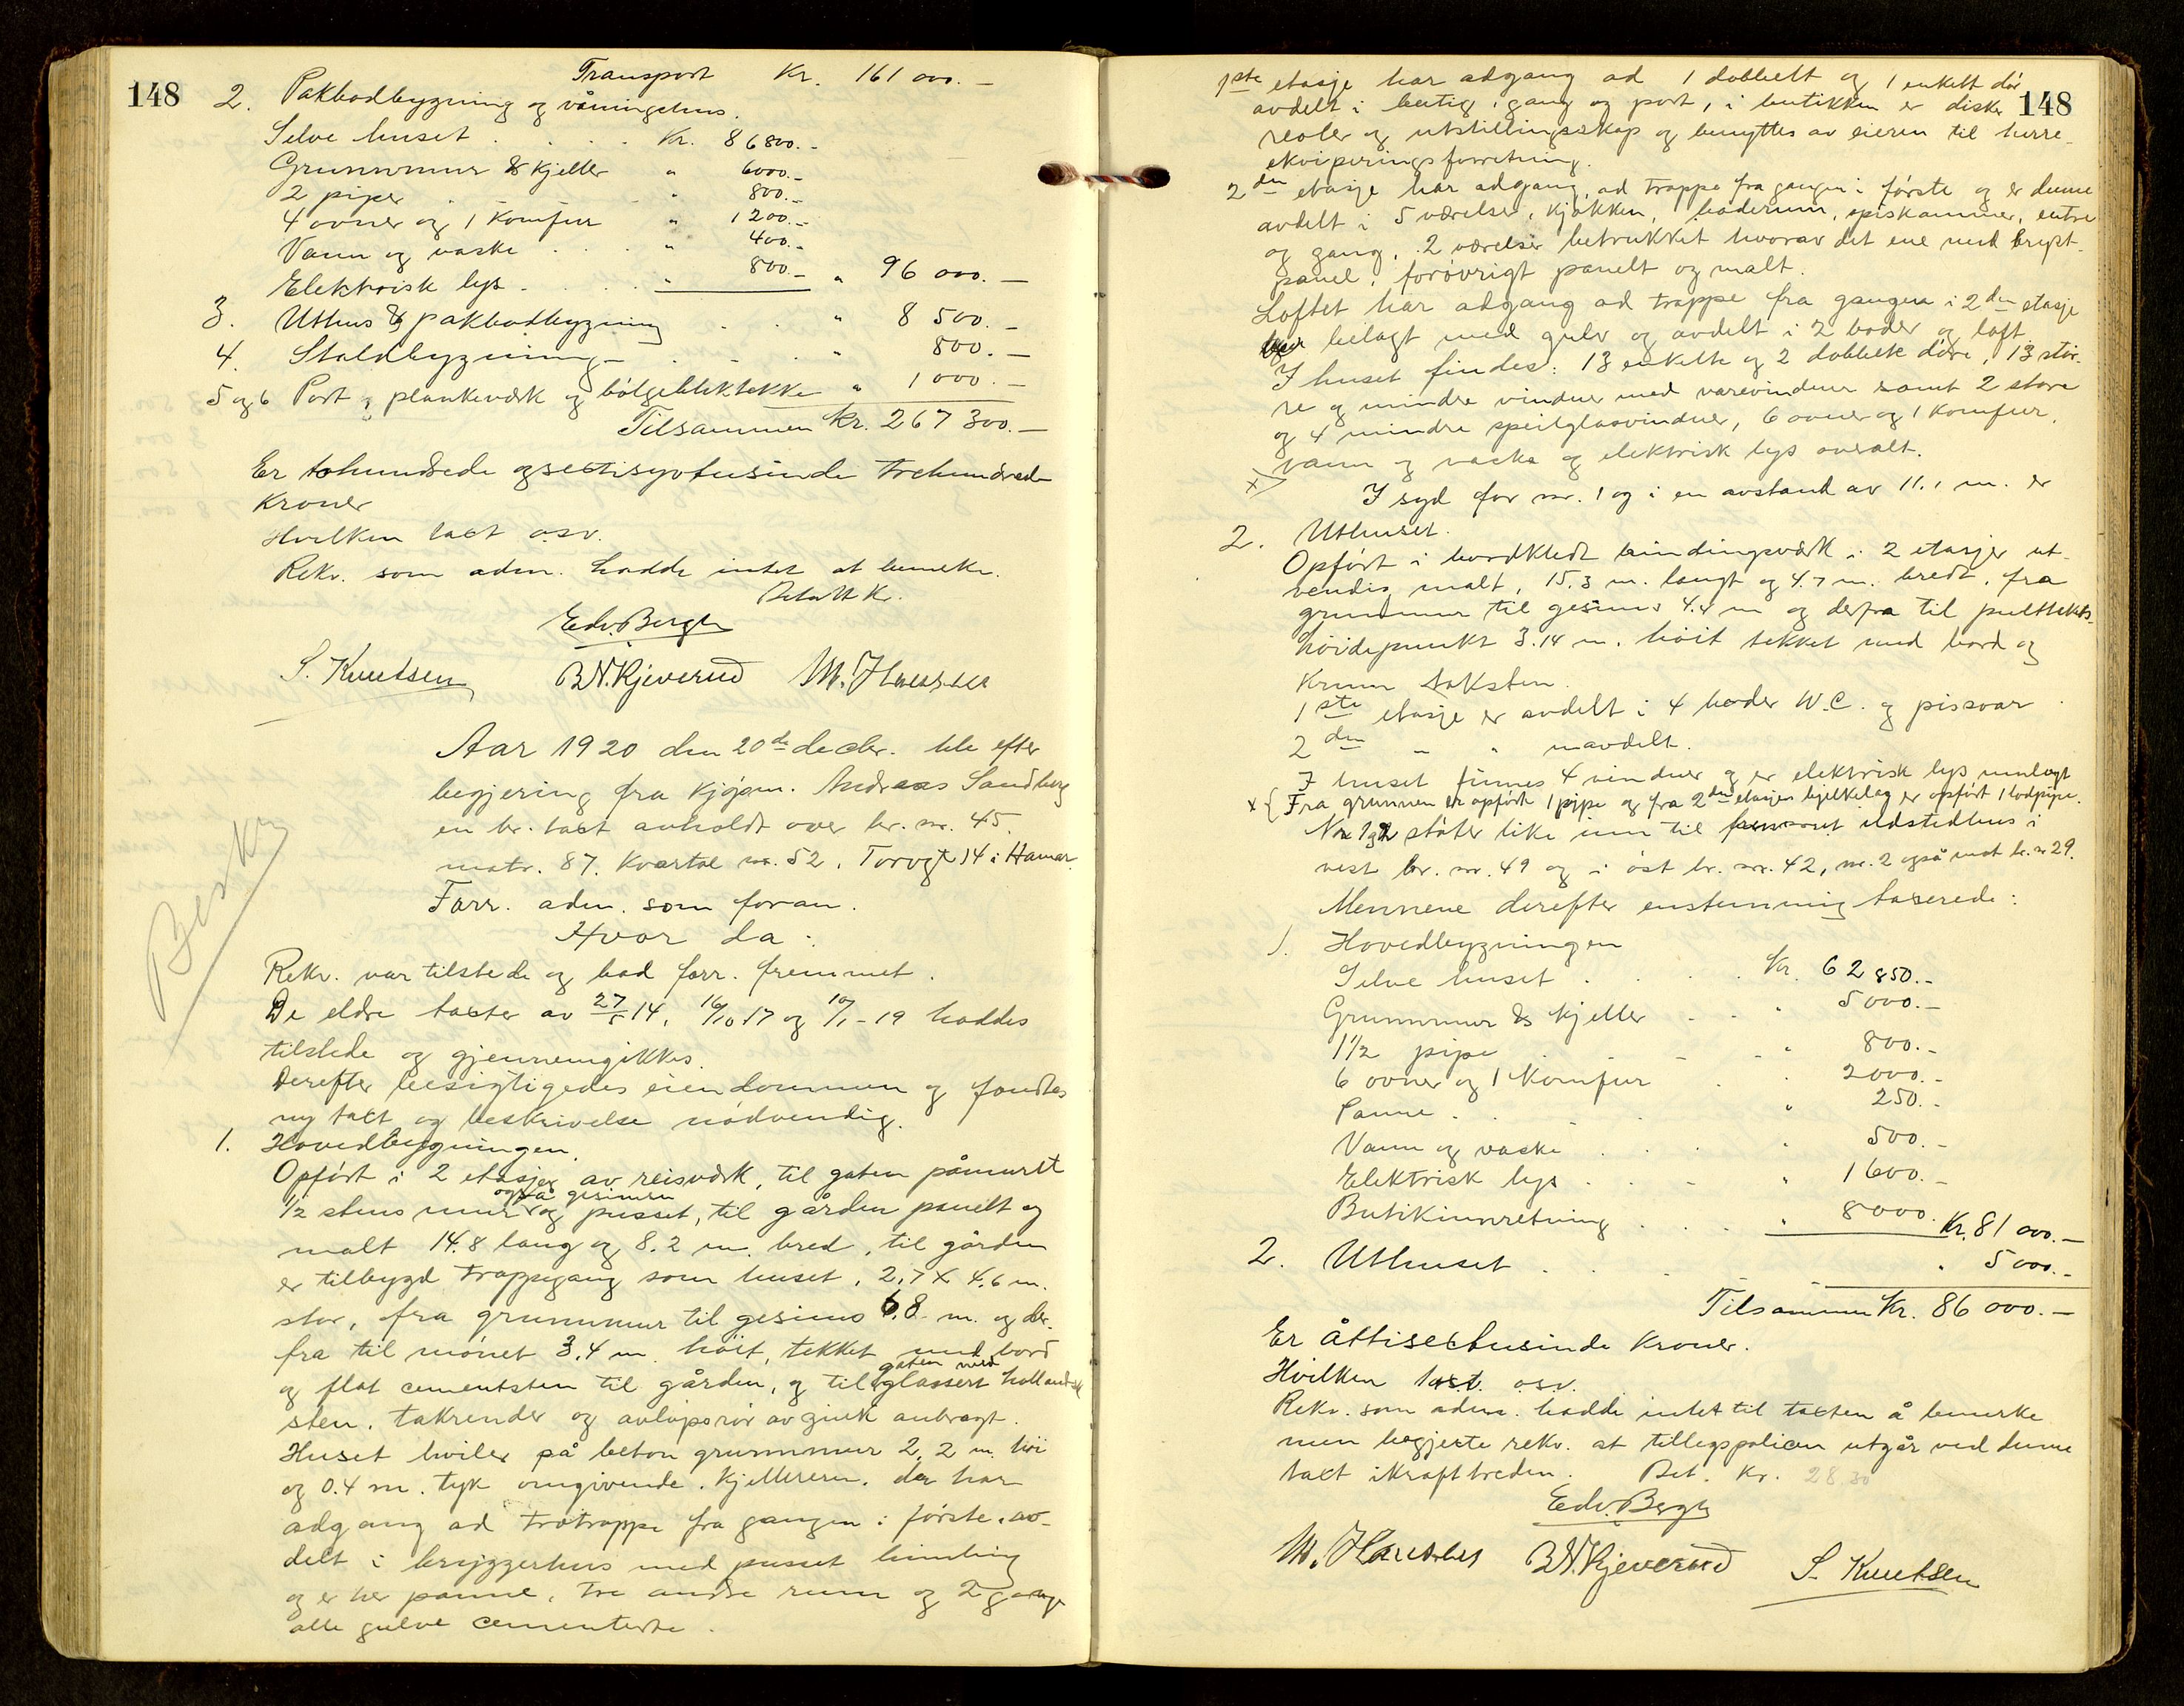 148
Transport Kr. 161 000.-
2. Pakbodbygning og våningshus.
Selve huset . . . . Kr. 86800.-
Grunnmur & Kjeller " 6000.-
2 piper . . . " 800.-
4 ovner og 1 Komfur " 1200.-
Vann og vaske . . . " 400.-
Elektrisk lys . . . . " 800.- " 96 000.-
3. Uthus & pakbodbygning . . " 8 500.-
4. Staldbygning . . . . " 800.-
5 og 6 Port, plankeverk og bølgebliktekke " 1 000.-
Tilsammen Kr. 267 300.-
Er tohundrede ogsectisyvtusinde trehundrede
Kroner
Hvilken taxt osv.
Rekv. som adm. hadde intet at bemerke.
Betalt Kr.
Edv. Bergh
S. Knutsen B.N. Kjeverud M. Hansen
Aar 1920 den 20de decbr. ble efter
begjering fra Kjøpm. Andreas Sandberg
en br. taxt avholdt over br. nr. 45.
matr. 87. Kvartal nr. 52. Torvgt 14 i Hamar.
Forr. adm. som foran.
Hvor da:
Beskr
Rekv. var tilstede og bad forr. fremmet.
De eldre taxter av 27/5 14, 16/10 17 og 10/1 - 19 haddes
tilstede og gjennemgikkes.
Derefter besigtigedes eiendommen og fandtes
ny taxt og beskrivelse nødvendig.
1. Hovedbygningen.
Opført i 2 etasjer av reisverk, til gaten påmurt
også gesimsen
1/2 stens mur og pusset, til gården panelt og
malt 14.8 lang og 8.2 m. bred, til gården
er tilbygd trappegang som huset, 2,7 x 4,6 m.
stor, fra grunnmur til gesims 6.8 m. og der-
fra til mønet 3,4 m. høit, tekket med bord
gaten med
og flat cementsten til gården, og til glassert hollandsk
sten. takrender og avløpsrør av zink anbragt.
Huset hviler på beton grunnmur 2,2 m. høi
og 0.4 m. tyk omgivende. Kjelleren, der har
adgang ad trætrappe fra gangen i første, av-
delt i bryggerhus med pusset himling
og er her panne, tre andre rum og 2 gange
alle gulve cementerte.
148
1ste etasje har adgang ad 1 dobbelt og 1 enkelt dør
avdelt i butig, gang og port, i butikken er diske
reoler og utstillingsskap og benyttes av eieren til herre-
ekviperingsforretning.
2den etasje har adgang ad trappe fra gangen i første og er denne
avdelt i 5 værelser, Kjøkken, baderum, spiskammer, entre
og gang, 2 værelser betrukket hvorav det ene med bryst-
panel, forøvrigt panelt og malt.
Loftet har adgang ad trappe fra gangen i 2den etasje
belagt med gulv og avdelt i 2 boder og loft.
I huset findes: 13 enkelte og 2 dobbelte døre, 13 stør-
re og mindre vinduer med varevinduer samt 2 store
og 4 mindre speilglasvinduer, 6 ovner og 1 Komfur,
vann og vaske og elektrisk lys overalt.
x) I syd for nr. 1 og i en avstand av 11.1 m. er
2. Uthuset.
Opført i bordkledt bindingsverk i 2 etasjer ut-
vendig malt, 15.3 m. langt og 4.7 m. bredt, fra
grunnmur til gesims 4.4 m og derfra til pulttakets
høidepunkt 3.14 m. høit tekket med bord og
Krum taksten.
1ste etasje er avdelt i 4 boder W.C. og pissoar.
2den - " uavdelt.
I huset finnes 4 vinduer og er elektrisk lys innlagt
x { Fra grunnen er opført 1 pipe og fra 2den etasjes bjelkelag er opført 1 lodpipe.
Nr 1 og 2 støter like inn til udstedhus i
vest br. nr. 49 og i øst br. nr. 42, nr. 2 også mot br. nr 29.
Mennene derefter enstemmig taxerede:
1. Hovedbygningen
Selve huset . . . . Kr. 62 850.-
Grunnmur & Kjeller . . . " 5000.-
1 1/2 pipe . . . " 800.-
6 ovner og 1 Komfur . . 2000.-
Panne . . . " 250.-
Vann og vaske . . . . 500.-
Elektrisk lys . . . . " 1600.-
Butikinnretning . . . . " 8000. Kr. 81 000.-
2. Uthuset . . . . " 5 000.-
Tilsammen Kr. 86 000.-
Er åttisectusinde Kroner.
Hvilken taxt osv.
Rekv. som adm. hadde intet til taxten å bemerke
men begjerte rekv. at tillegspolicen utgår ved denne
taxt ikrafttreden. Bet. Kr. 28.30
Edv. Bergh
M. Hansen B.N. Kjeverud S. Knutsen